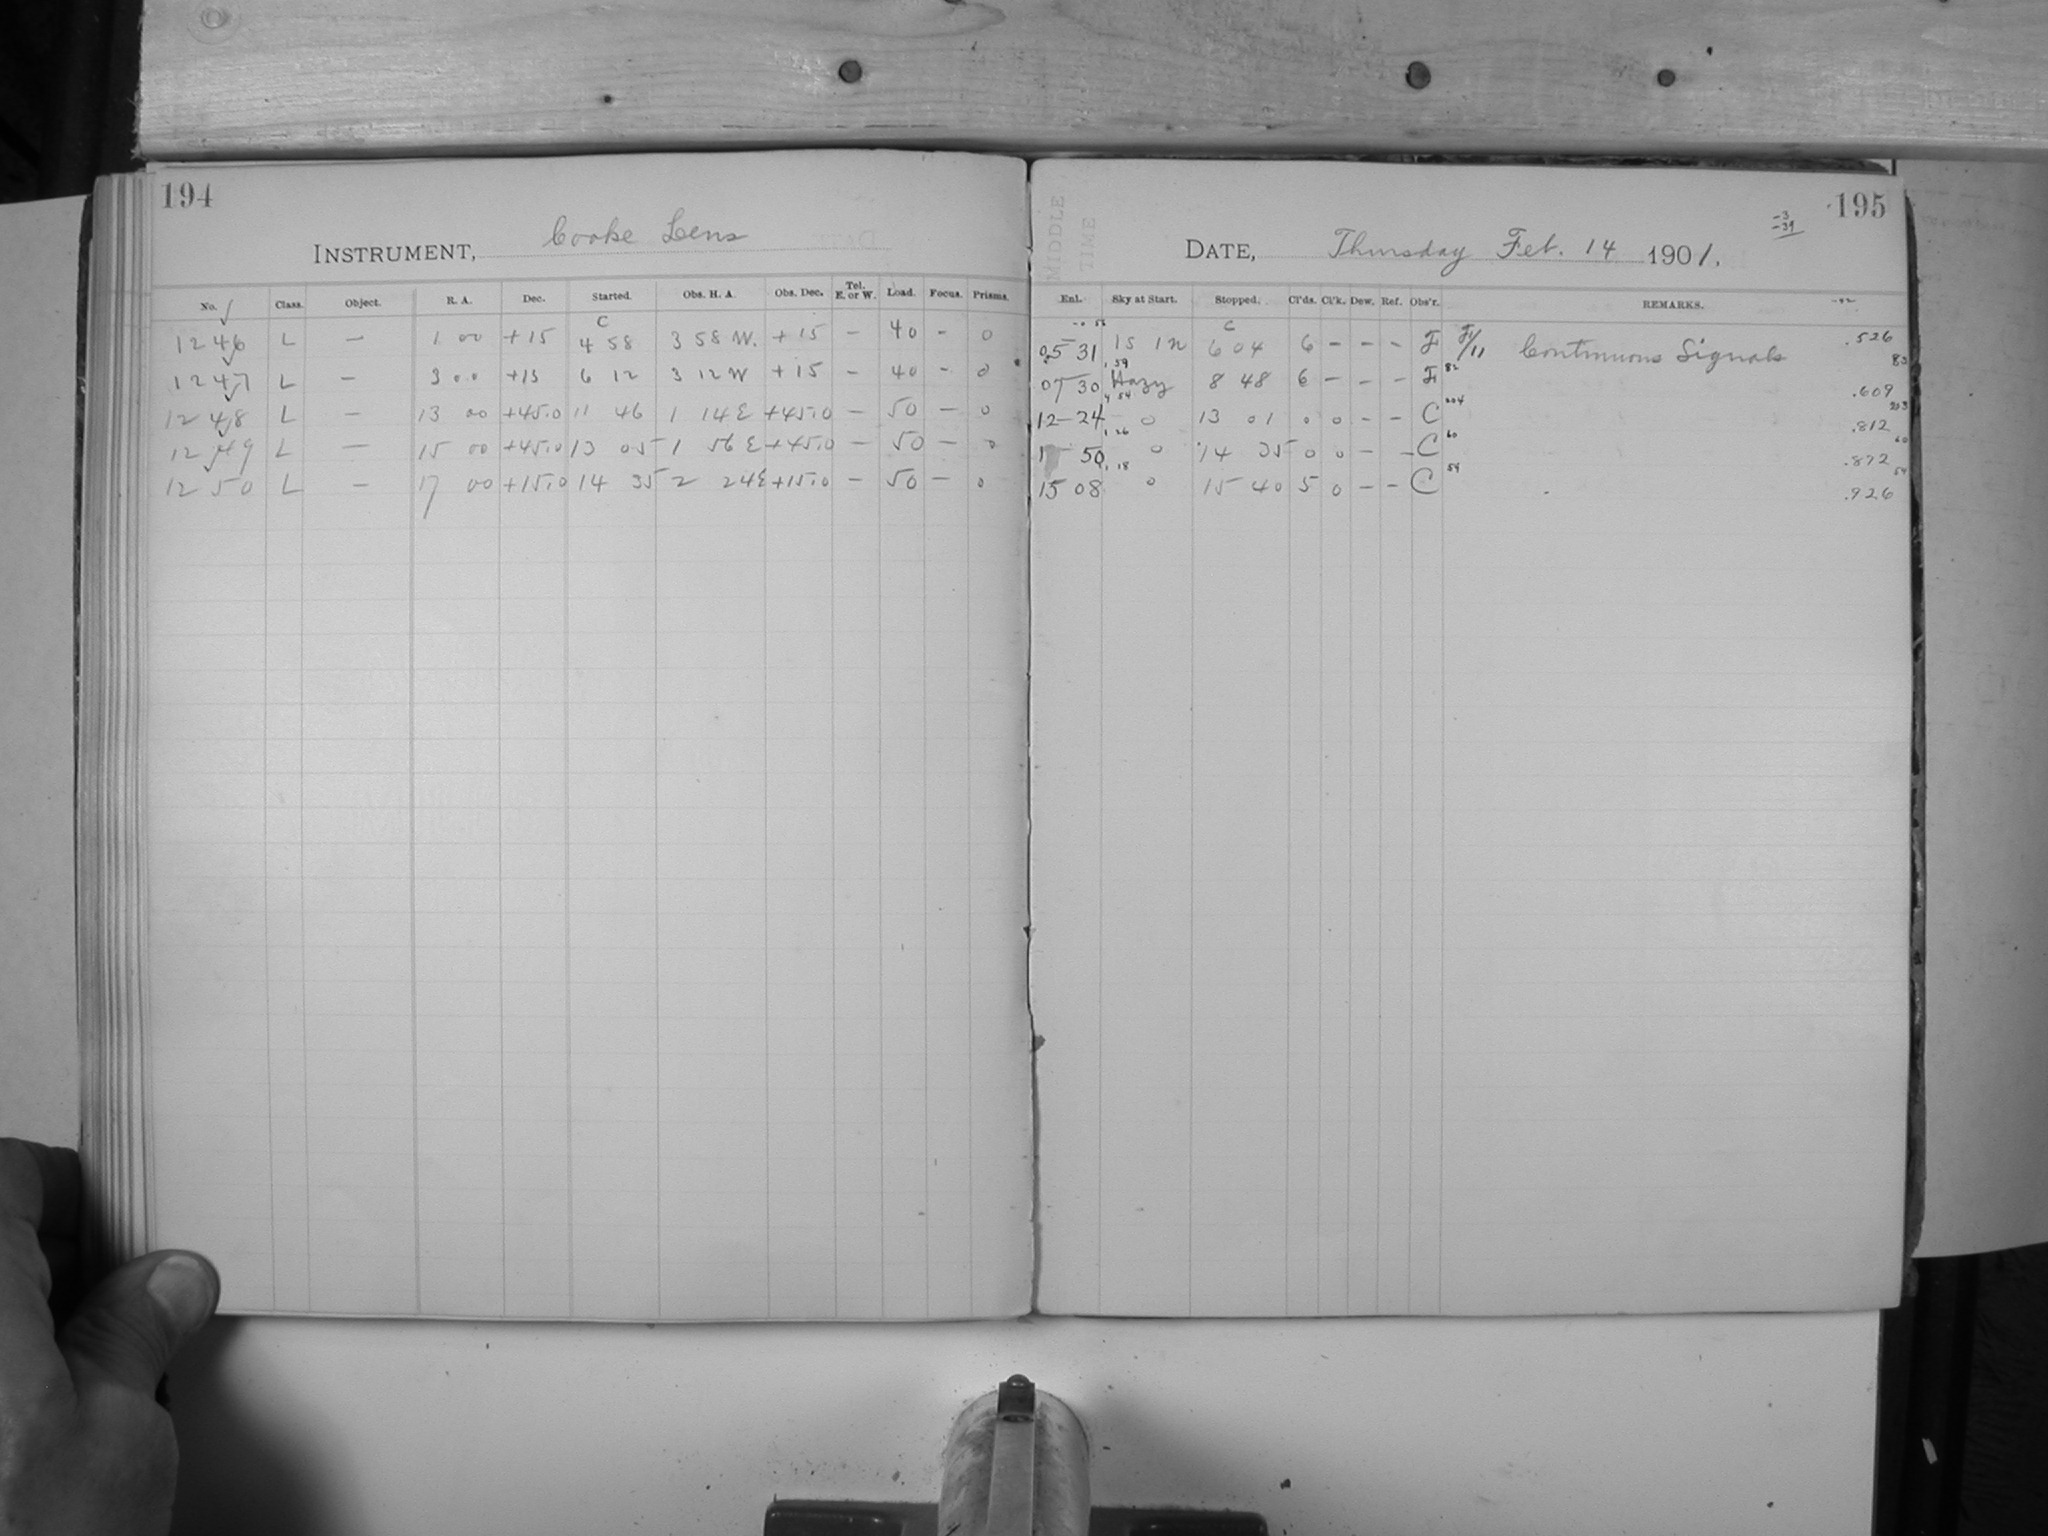 194
INSTRUMENT, Cooke Lens
No. Class. Object. R. A. Dec. Started. Obs. H. A. Obs. Dec. Tel. E. or W. Load. Focus. Prisms.
C
1246 L — 1 00 +15 4 58 3 58 W. +15 — 40 - 0
1247 L — 3 00 +15 6 12 3 12 W +15 — 40 - 0
1248 L — 13 00 +45.0 11 46 1 14 E +45.0 — 50 — 0
1249 L — 15 00 +45.0 13 05 1 56 E +45.0 — 50 — 0
1250 L — 17 00 +15.0 14 35 2 24 E +15.0 — 50 — 0
195
-3
-39
MIDDLE
TIME
DATE, Thursday Feb. 14 1901.
Enl. Sky at Start. Stopped. Cl'ds. Cl'k. Dew. Ref. Obs'r. REMARKS.
C
05 31 1S 1N 6 04 6 - - - F F/11 Continuous Signals .526
1 59 82 83
07 30 Hazy 8 48 6 - - - F .609
4 54 204 203
12 24 0 13 01 0 0 - - C .812
1 26 60 60
50 0 14 35 0 0 - - C .872
1 18 54 54
15 08 0 15 40 5 0 - - C .926